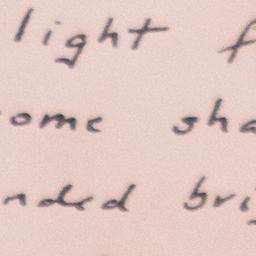 light f
ome sha
nded bri